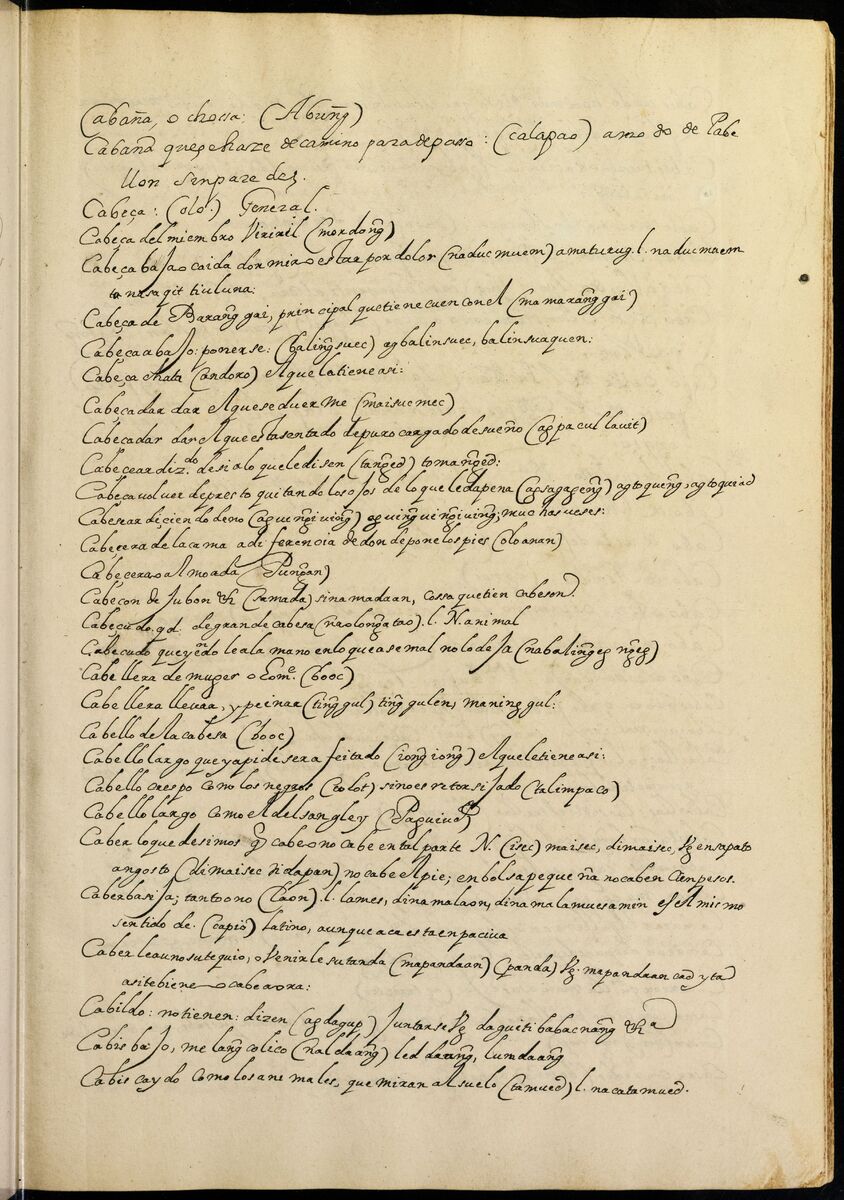 Cabaña, o chossa: (Abuñg)
Cabaña que se haze de camino para de passo: (calapao) a modo de Pabe
llon sin paredes.
Cabeça: (olo.) General.
Cabeça del miembro Viriril (mordong̃)
Cabeça baja o caida dormir o estar por dolor (naducmuem) amaturug. l. naducmuem
ta nasagit tiuluna:
Cabeça de Barang̃gai, principal que tiene cuen con el (mamarang̃gai)
Cabeça abaJo: ponerse: (baling̃suec) agbalinsuec, balinsuaquen:
Cabeça chata (andoro) el que la tiene asi:
Cabeça dar dar el que se duerme (maisuc mec)
Cabeça dar dar el que esta sentado de puro cargado de sueño (agpacullauit)
Cabecear diz.do de si a lo que le disen (tang̃ed) tomang̃ed:
Cabeça voluer de presto quitando los oJos de lo que le da pena (agsagageng̃) agtoqueng̃, agtoquiad
Cabesear diciendo de no (aguing̃iuing̃) aguing̃uing̃iuing̃; muchas veses:
Cabecera de la cama a diferencia de donde pone los pies (oloanan)
Cabecera o almoada (Pung̃an)
Cabeçon de Jubon &c (samada) sinamadaan, cossa que tien cabeson.
Cabeçudo. q.d. de grande cabesa (naolong̃atao). l. N. animal
Cabeçudo que yendo le a la mano en lo que ase mal no lo deJa (nabaling̃eg ng̃eg)
Cabellera de muger o home. (booc)
Cabellera lleuar, y peinar (ting̃gul) ting̃gulen, maninggul:
Cabello de la cabesa (booc)
Cabello largo que ya pide ser afeitado (iong̃iong̃) el que le tiene asi:
Cabello crespo como los negros (colot) sino es retorsiJado (talimpaco)
Cabello largo como el del sangley (Paguiud)
Caber lo que desimos q̃ cabe o no cabe en tal parte N. (isec) maisec, dimaisec, Vg. en sapato
angosto (dimaisec ti dapan) no cabe el pie; en bolsa pequeña no caben cien pesos.
Caber basiJa; tanto o no (laon). l. lames, dinamalaon, dinamalamues amin es el mismo
sentido de. (capio) latino, aunque aca esta en paciua
Caber le a uno su tequio, o Venirle su tanda (mapandaan) (panda) Vg. mapandaan cad yta
asi te biene o cabe aora:
Cabildo: no tienen: dizen (agdagup) Juntarse Vg. daguiti babacnang̃ &c.a
Cabis baJo, melang̃colico (naldaang̃) leddaang̃, lumdaang̃
Cabis caydo como los animales, que miran al suelo (tamued) l. nacatamued.